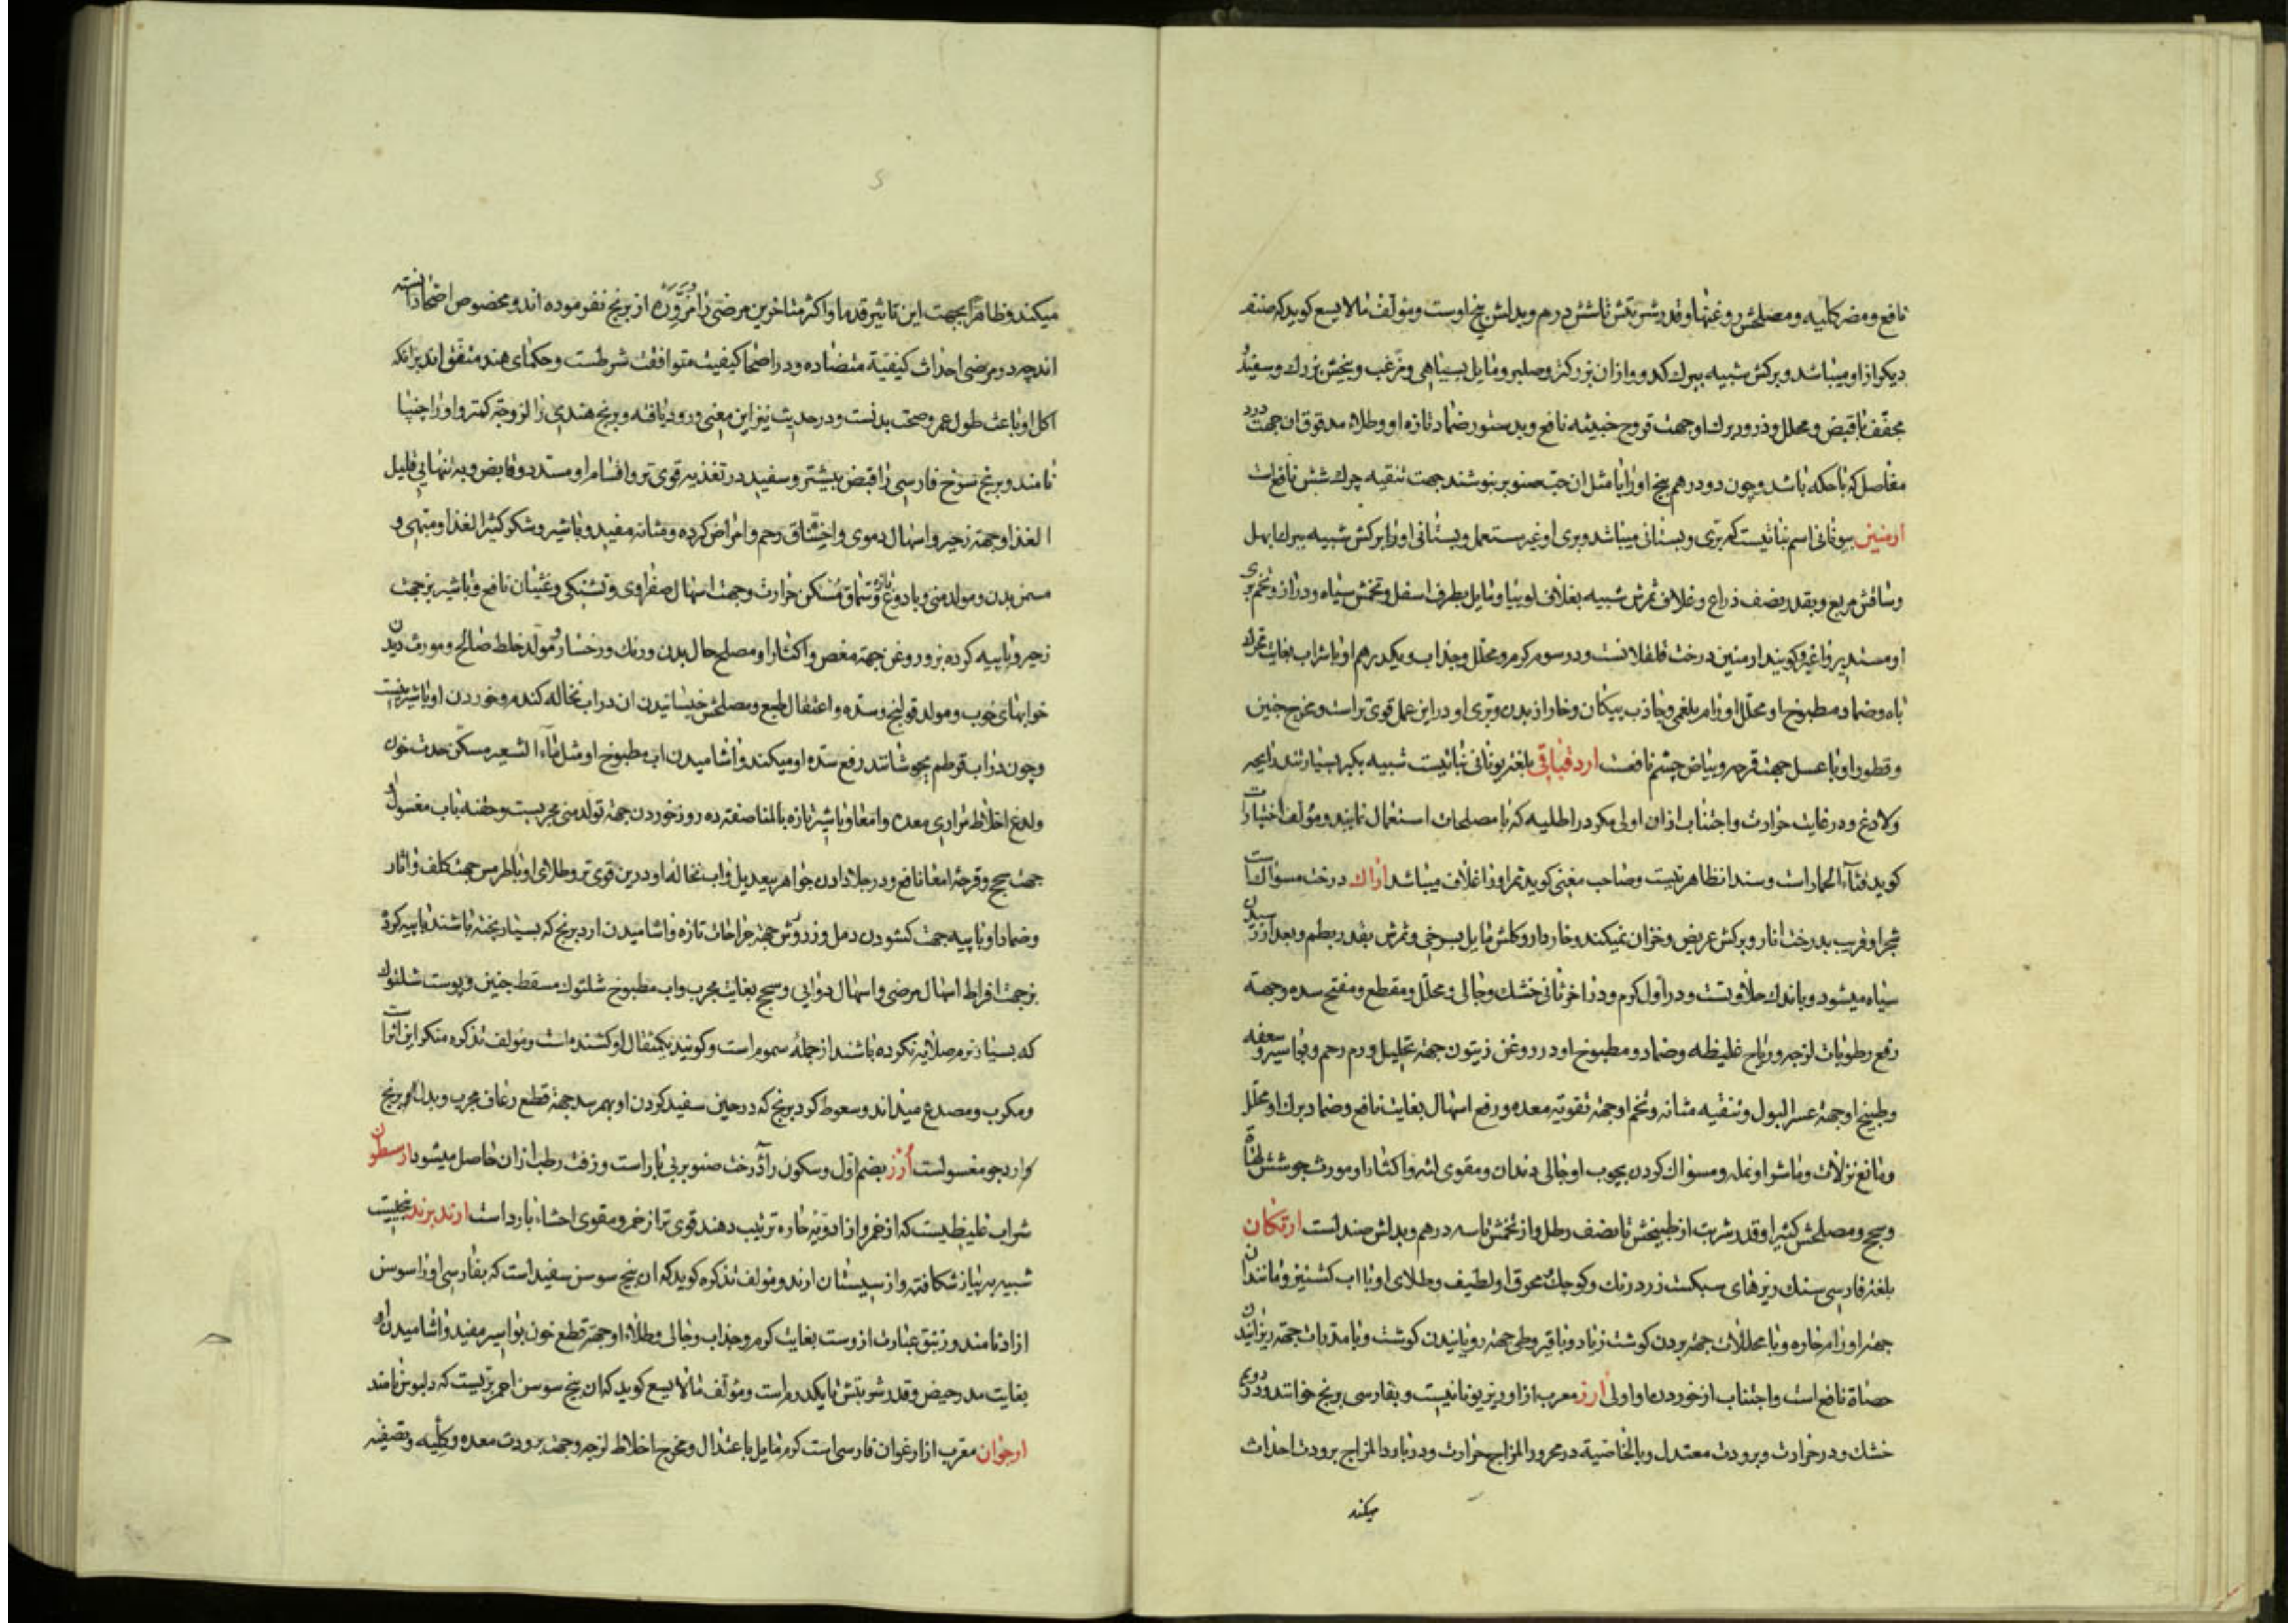 نافع و مضر کلیه و مصلحش روغنها و قدر شربتش تا شش درهم و بدلش بیخ اوست و مؤلف مالایسع کوید که صنف
دیکر از او میباشد و برکش شبیه ببرک کدو و ازان بزرکتر و صلب و مایل بسیاهی و مزغب و بیخش بزرک و سفید و
مجفف با قبض و محلل و ذرور برک او جهت قروح خبیثه نافع و بدستور ضماد تازه او و طلاء مدقوق ان جهت درد
مفاصل که با حکه باشد و چون دو درهم بیخ او را با مثل ان حب صنوبر بنوشند جهت تنقیه چرک شش نافع است
ارمنین یونانی اسم نباتیست که بری و بستانی میباشد و بری او غیر مستعمل و بستانی او را برکش شبیه ببرک بهل
و ساقش مربع و بقدر نصف ذراع و غلاف ثمرش شبیه بغلاف لوبیا و مایل بطرف اسفل و تخمش سیاه و دراز و تخم بری
او مستدیر و اغبر و کویند ارمنین درخت قلقلانست و در سوم کرم و محلل و جذاب و یکدرهم او با شراب بغایت محرک
باه و ضماد مطبوخ او محلل اورام بلغمی و جاذب پیکان و خار از بدن و بری او در این عمل قوی تر است و مخرج جنین
و قطور او با عسل جهت قرحه و بیاض چشم نافعست ارد قباقی بلغة یونانی نباتیست شبیه بکبر بسیار تند رایحه
و لاذع و در غایت حرارت و اجتناب ازان اولی مکر در اطلیه که با مصلحات استعمال نمایند و مؤلف اختیارات
کوید قثاء الحمار است و سند ان ظاهر نیست و صاحب مغنی کوید ثمر او را غلاف میباشد اراک درخت مسواک است
شجر او قریب بدرخت انار و برکش عریض و خزان نمیکند و خاردار و کلش مایل بسرخی و ثمرش بقدر بطم و بعد از رسیدن
سیاه میشود و با اندک حلاوتست و در اول کرم و در اخر ثانی خشک و جالی و محلل و مقطع و مفتح سده و جهة
رفع رطوبات لزجه و ریاح غلیظه و ضماد و مطبوخ او در روغن زیتون جهة تحلیل ورم رحم و بواسیر و سعفه
و طبیخ او جهة عسر البول و تنقیه مثانه و تخم او جهة تقویة معده و رفع اسهال بغایت نافع و ضماد برک او محلل
و مانع نزلات و ماشرا و نمله و مسواک کردن بچوب او جالی دندان و مقوی لثه و اکثار او مورث جوشش لهاة
و سحج و مصلحش کثیرا و قدر شربت از طبیخش تا نصف رطل و از تخمش تا سه درهم و بدلش صندلست ارتکان
بلغة فارسی سنک ریزهای سبکست زرد رنک و کوچک و محرق او لطیف و طلای او با اب کشنیز و مانند ان
جهة اورام حاره و با محللات جهة بردن کوشت زیاد و با قیروطی جهة رویانیدن کوشت و با مدرات جهة ریزانیدن
حصاة نافع است و اجتناب از خوردن او اولی ارز معرب از اوریز یونانیست و بفارسی برنج خوانند در دویم
خشک و در حرارت و برودت معتدل و بالخاصیة در محرور المزاج حرارت و در بارد المزاج برودت احداث
میکند
میکند و ظاهرا بجهت این تاثیر قدما و اکثر متاخرین مرضی را مزوره از برنج نفرموده اند و مخصوص اصحا دانسته
اند چه در مرضی احداث کیفیة متضاده و در اصحا کیفیت متوافقه شرطست و حکمای هند متفق اند بر انکه
اکل او باعث طول عمر و صحت بدنست و در حدیث نیز این معنی ورود یافته و برنج هندی را لزوجة کمتر و او را چنپا
نامند و برنج سرخ فارسی را قبض بیشتر و سفید در تغذیه قوی تر و اقسام او مسدد و قابض و به تنهایی قلیل
الغذا و جهة زحیر و اسهال دموی و اختناق رحم و امراض کرده و مثانه مفید و با شیر و شکر کثیر الغذا و مبهی و
مسمن بدن و مولد منی و با دوغ تازه و سماق مسکن حرارت و جهت اسهال صفراوی و تشنکی و غثیان نافع و با شیر بز جهت
زحیر و با پیه کرده بز و روغن جهة مغص و اکثار او مصلح حال بدن و رنک و رخسار و مولد خلط صالح و مورث دیدن
خوابهای خوب و مولد قولنج و سده و اعتقال طبع و مصلحش خیسانیدن ان در اب نخاله کندم و خوردن او با شیرینیست
و چون در اب قرطم بجوشانند رفع سده او میکند و اشامیدن اب مطبوخ او مثل ماء الشعیر مسکن حدت خون
و لدغ اخلاط مراری معده و امعا و با شیر تازه بالمناصفه ده روز خوردن جهة تولد منی مجربست و حقنه باب مغسول او
جهت سحج و قرحه امعا نافع و در جلا دادن جواهر بیعدیل و اب نخاله او درین قوی تر و طلای او با طرمس جهت کلف و اثار
و ضماد او با پیه جهت کشودن دمل و زرورش جهة جراحات تازه و اشامیدن ارد برنج که بسیار پخته باشند با پیه کرده
بز جهت افراط اسهال مرضی و اسهال دوایی و سحج بغایت مجرب و اب مطبوخ شلتوک مسقط جنین و پوست شلتوک
که بسیار نرم صلایه نکرده باشند از جمله سموم است و کویند یکمثقال او کشنده است و مؤلف تذکره منکر این اثر است
و مکرب و مصدع میداند و سعوط کرد برنج که در حین سفید کردن او بهم رسد جهة قطع رعاف مجرب و بدل برنج
ارد جو مغسولست ارز بضم اول و سکون رآ درخت صنوبر بی بار است و زفت رطب ازان حاصل میشود ارسطون
شراب غلیظیست که از خمر و از ادویة حاره ترتیب دهند قوی تر از خمر و مقوی احشاء بارد است ارتدبرند بیخیست
شبیه به پیاز شکافته و از سیستان ارند و مؤلف تذکره کوید که ان بیخ سوسن سفید است که بفارسی او را سوسن
ازاد نامند و زنبق عبارت ازوست بغایت کرم و جذاب و جالی و طلاء او جهة قطع خون بواسیر مفید و اشامیدن او
بغایت مدر حیض و قدر شربتش تا یکدرم است و مؤلف مالایسع کوید که ان بیخ سوسن احمر بریست که دلبوس نامند
ارجوان معرب از ارغوان فارسی است کرم مایل باعتدال و مخرج اخلاط لزجه و جهت برودت معده و کلیه و تصفیه